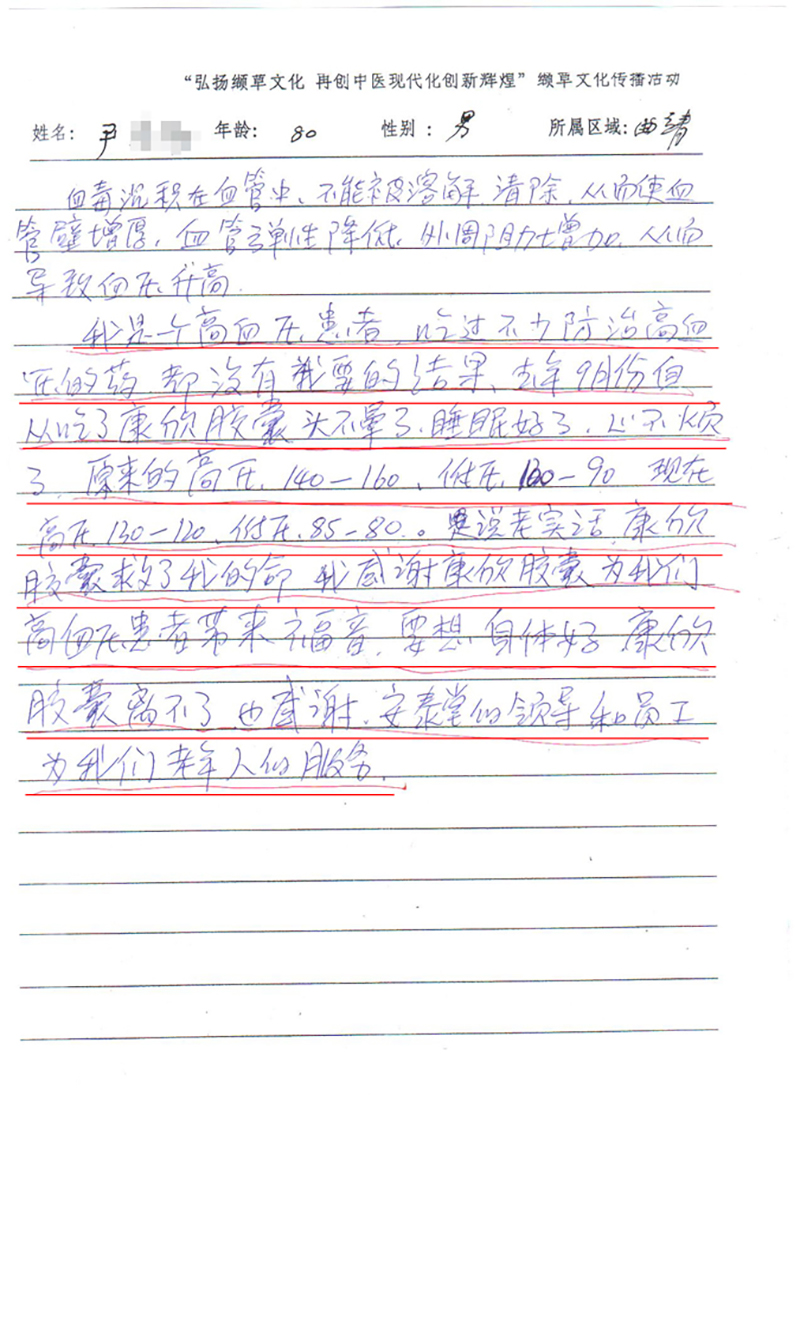 “弘扬缬草文化 再创中医现代化创新辉煌”缬草文化传播活动
姓名: 尹 年龄: 80 性别: 男 所属区域: 曲靖
血毒沉积在血管中、不能被溶解.清除.从而使血
管壁增厚，血管弹性降低.外周阻力增加.从而
导致血压升高.
我是个高血压患者.吃过不少防治高血
压的药.都没有我要的结果、去年9月份自
从吃了康欣胶囊头不晕了.睡眠好了.心不烦
了.原来的高压.140—160、低压.100—90 现在
高压.130—120、低压.85—80.。说老实话.康欣
胶囊救了我的命 我感谢康欣胶囊为我们
高血压患者带来福音.要想身体好 康欣
胶囊离不了.也感谢.安泰堂的领导和员工
为我们老年人的服务.